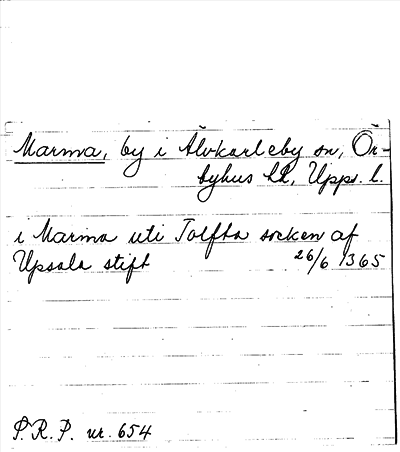 Marma, by i Älvkarleby sn, Ör-
byhus hd, Upps. l.
i Marma uti Tolfta socken af
Upsala stift 26/6 1365
P.R.P. nr. 654